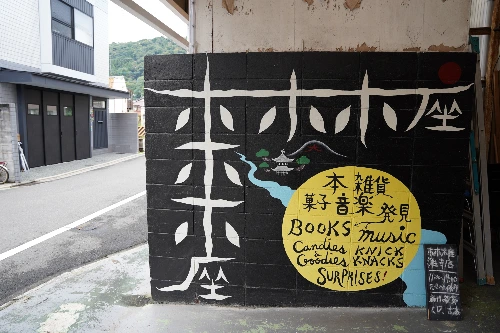 木木木座
木木座
本 雑貨
菓子 音楽 発見
BOOKS music
Candies & Goodies
KNICK KNACKS
SURPRISES!